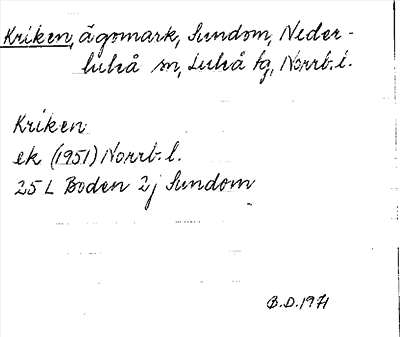 Kriken, ägomark, Sundom, Neder-
luleå sn, Luleå tg, Norrb. l.
Kriken
ek (1951) Norrb. l.
25 L Boden 2j Sundom
B.D. 1971